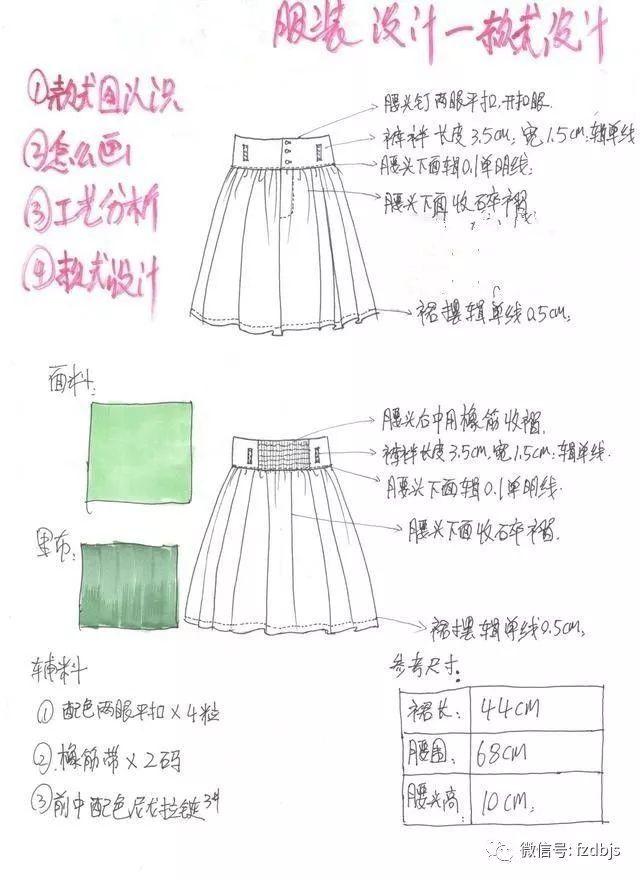 服装设计一款式设计
①款式图认识
②怎么画
③工艺分析
④款式设计
腰头钉两眼平扣.开扣眼.
裤袢长度3.5cm.宽1.5cm.辑单线
腰头下面辑0.1单明线.
腰头下面收碎褶.
裙摆辑单线0.5cm.
面料:
腰头后中用橡筋收褶.
裤袢长度3.5cm.宽1.5cm.辑单线.
腰头下面辑0.1单明线.
腰头下面收碎褶.
裙摆辑单线0.5cm.
里布:
辅料
①配色两眼平扣×4粒
②.橡筋带×2码
③前中配色尼龙拉链
参考尺寸:
裙长: 44cm
腰围: 68cm
腰头高: 10cm.
微信号: fzdbjs